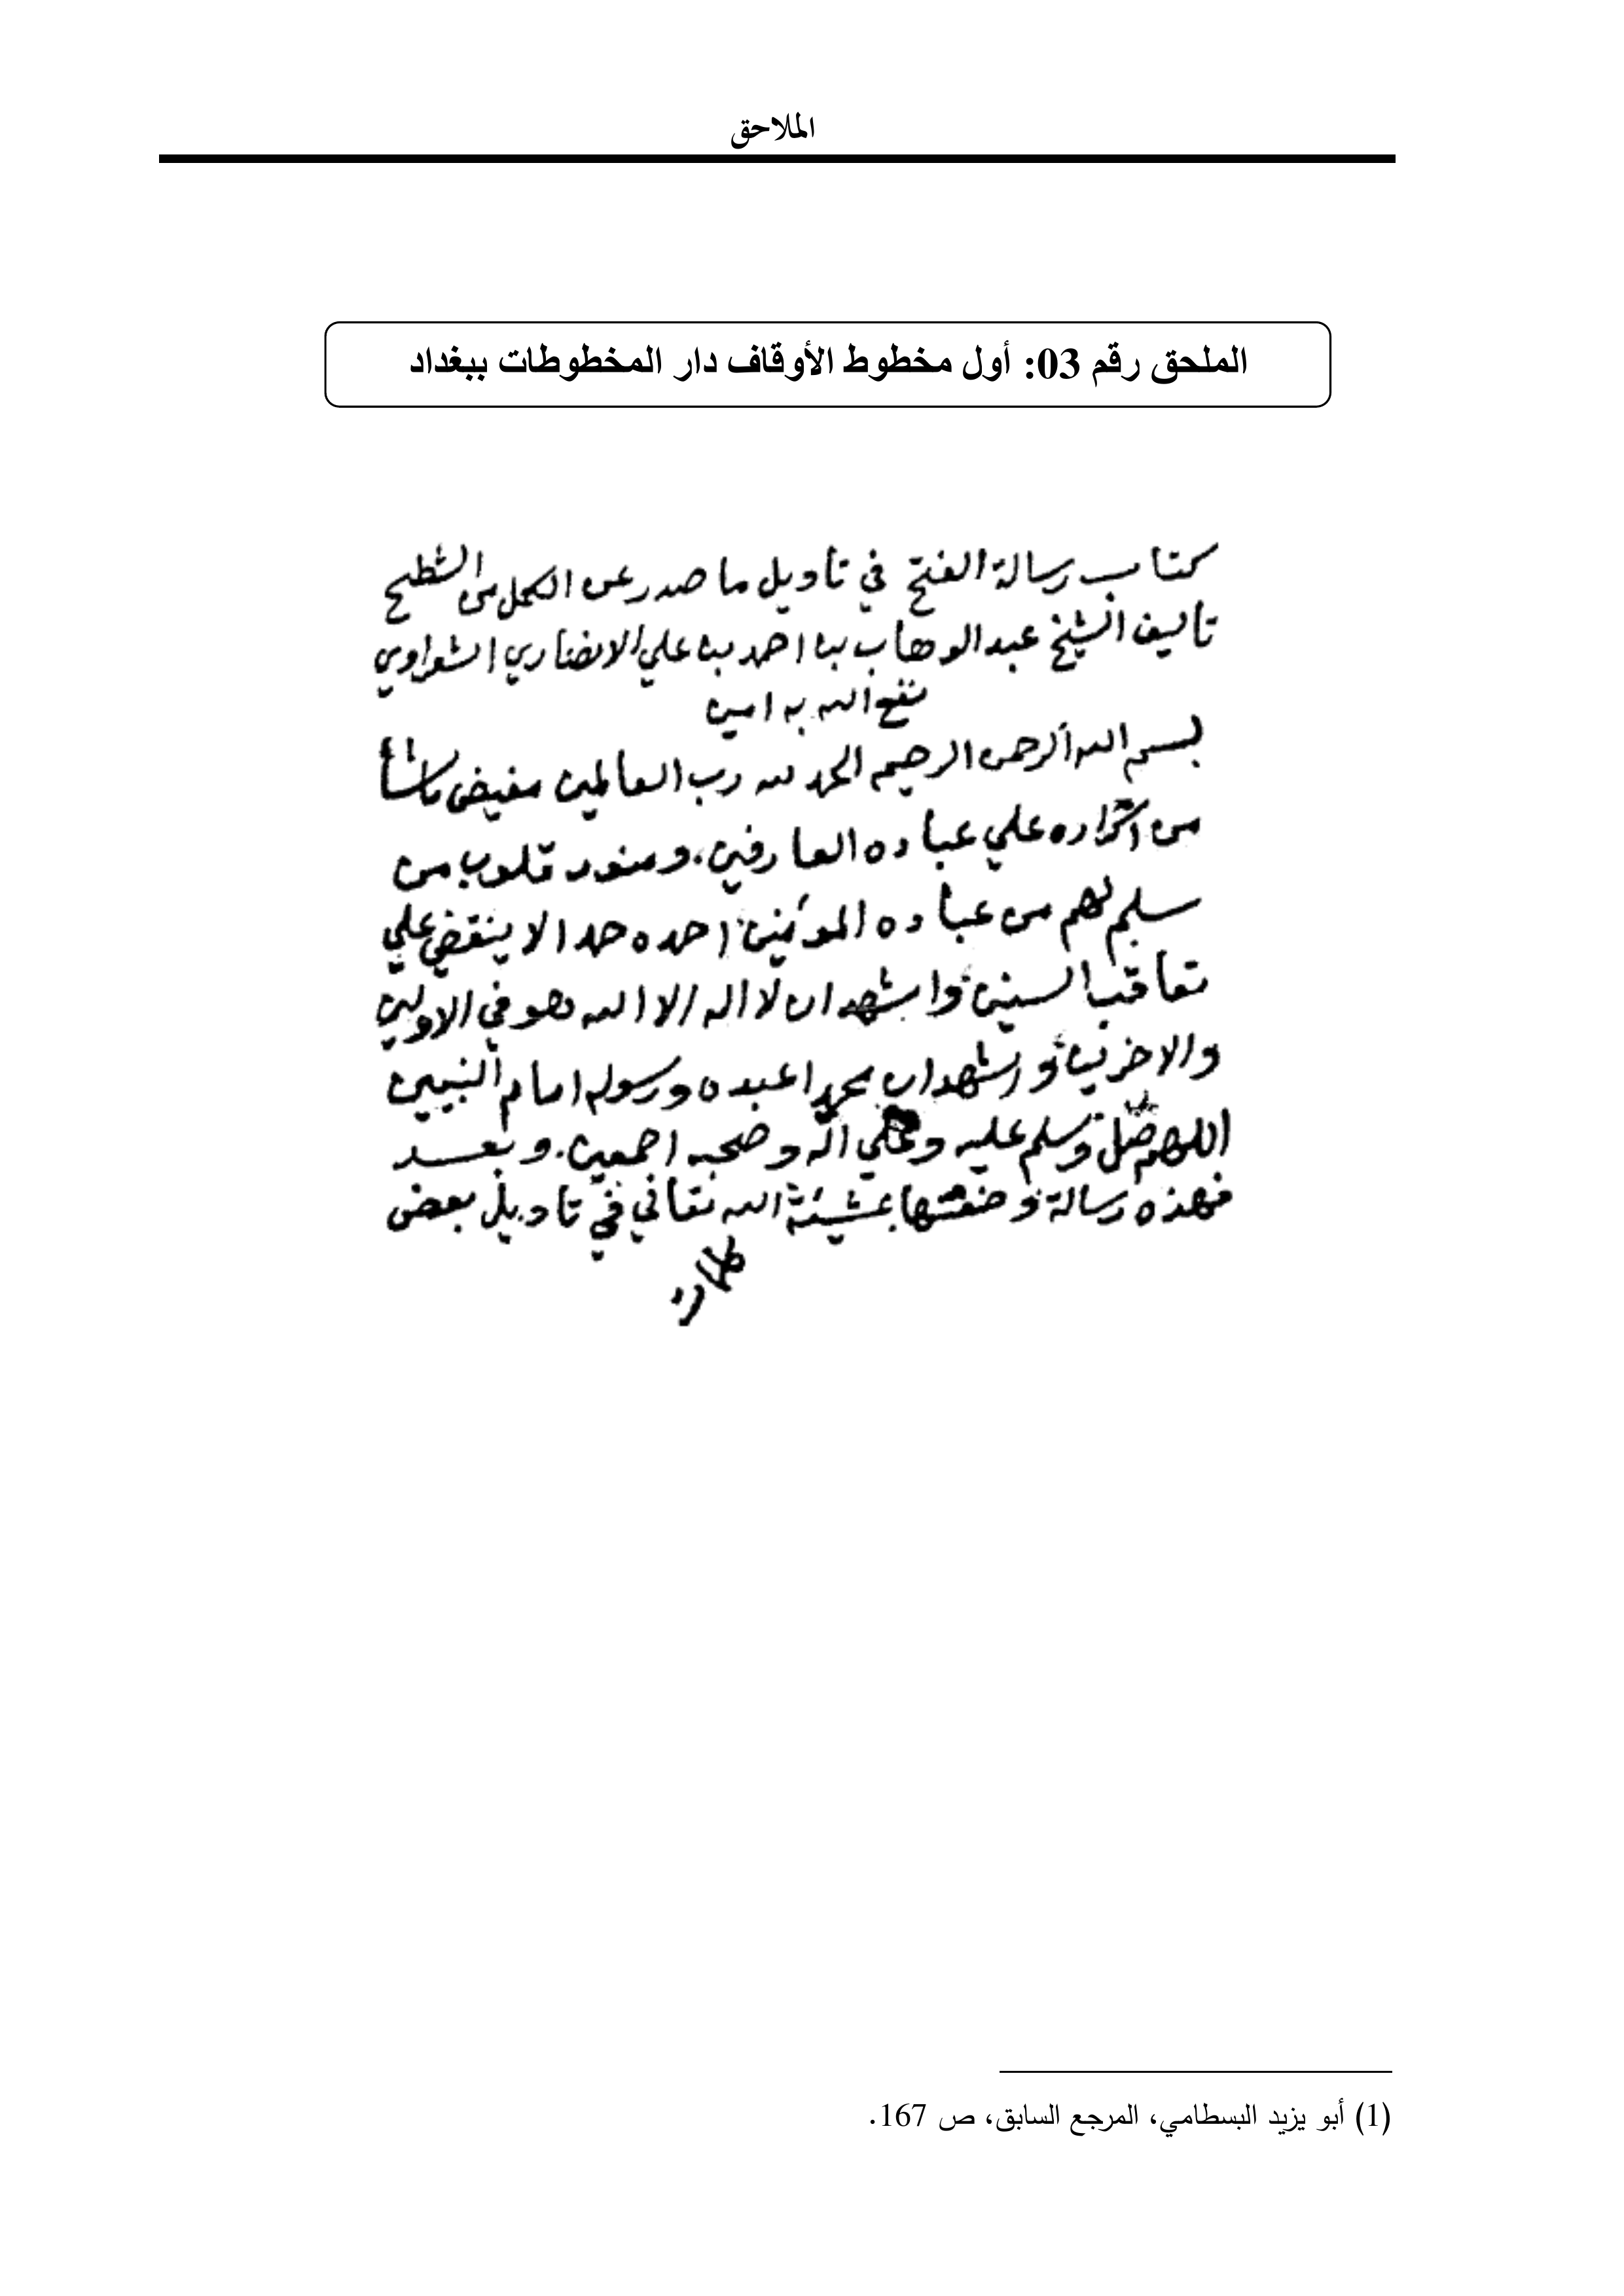 الملاحق
الملحق رقم 03: أول مخطوط الأوقاف دار المخطوطات ببغداد
كتاب رسالة الفتح في تأويل ما صدر عن الكمل من الشطح
تأليف الشيخ عبد الوهاب بن احمد بن علي الانصاري الشعراوي
نفع الله به امين
بسم الله الرحمن الرحيم الحمد لله رب العالمين مفيض ما شأ
من اسراره علي عباده العارفين، ومنور قلوب من
سلم لهم من عباده المومنين احمده حمدا لا ينقضي علي
تعاقب السنين واشهد ان لا اله الا الله هو في الاولين
والاخرين واشهد ان محمدا عبده ورسوله امام النبيين
اللهم فصل وسلم عليه وعلي اله وصحبه اجمعين. وبعد
فهذه رسالة وضعتها بمشيئة الله تعالي في تاويل بعض
(1) أبو يزيد البسطامي، المرجع السابق، ص 167.